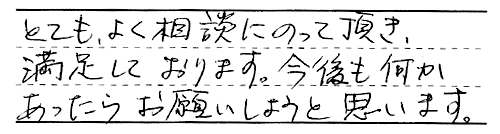 とても、よく相談にのって頂き、
満足しております。今後も何か
あったらお願いしようと思います。